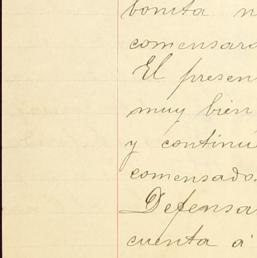 bonita n
comensaro
El presen
muy bien
y continú
comensado.
Defensa
cuenta á